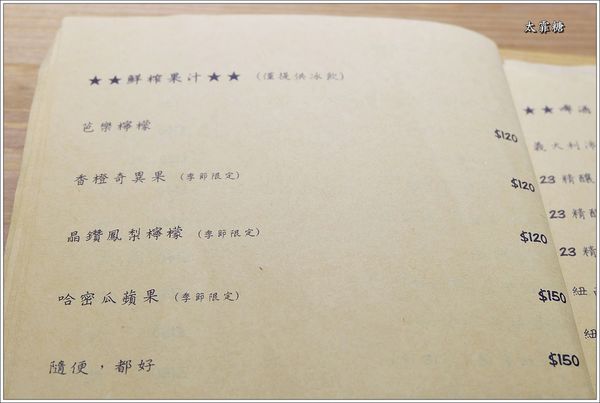 太霏糖
★★鮮榨果汁★★ (僅提供冰飲)
芭樂檸檬 $120
香橙奇異果 (季節限定) $120
晶鑽鳳梨檸檬 (季節限定) $120
哈密瓜蘋果 (季節限定) $150
隨便，都好 $150
★★啤酒
義大利
23 精釀
23 精釀
23 精
紐
紐